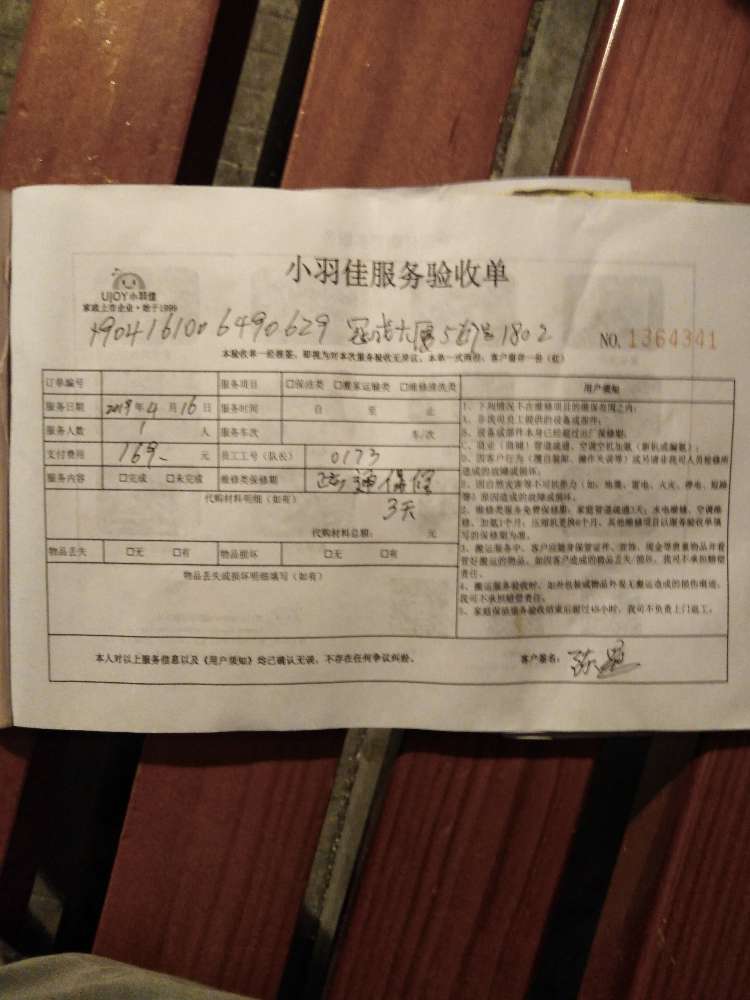 小羽佳服务验收单
UJOY小羽佳
家政上市企业·始于1999
1904161006490629 冠成大厦5号1802
NO. 1364341
本验收单一经推签，即视为对本次服务验收无异议，本单一式两份，客户留存一份（红）
订单编号 服务项目 □保洁类 □搬家运输类 □维修清洗类
服务日期 2019年4月16日 服务时间 自 至 止
服务人数 1 人 服务车次 车/次
支付费用 169- 元 员工工号（队长） 0173
服务内容 □完成 □未完成 维修类保修期 疏通保修
3天
代购材料明细（如有）
代购材料总额： 元
物品丢失 □无 □有 物品损坏 □无 □有
物品丢失或损坏明细填写（如有）
用户须知
1、下列情况不在维修项目的维保范围之内：
A、非我司员工提供的设备或部件；
B、设备或部件本身已经超过出厂保修期；
C、商业（店铺）管道疏通、空调空机加氟（新机或漏氟）；
D、因客户行为（擅自装卸、操作失误等）或另请非我司人员检修所
造成的故障或损坏；
E、因自然灾害等不可抗拒力（如：地震、雷电、火灾、停电、短路
等）原因造成的故障或损坏。
2、维修类服务免费保修期：家庭管道疏通3天；水电维修、空调维
修、加氟1个月；压缩机更换6个月，其他维修项目以服务验收单填
写的保修期为准。
3、搬运服务中，客户应随身保管证件、首饰、现金等贵重物品并看
管好搬运的物品，如因客户造成的物品丢失/损坏，我司不承担赔偿
责任。
4、搬运服务验收时，如外包装或物品外表无搬运造成的损伤痕迹，
我司不承担赔偿责任。
5、家庭保洁服务验收结束后超过48小时，我司不负责上门返工。
本人对以上服务信息以及《用户须知》均已确认无误，不存在任何争议纠纷。 客户签名：